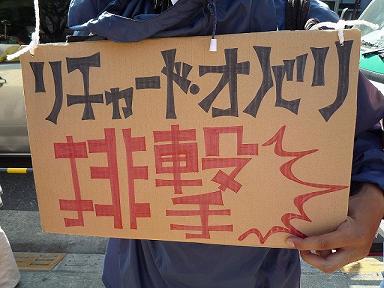 リチャード・オバリ
排撃